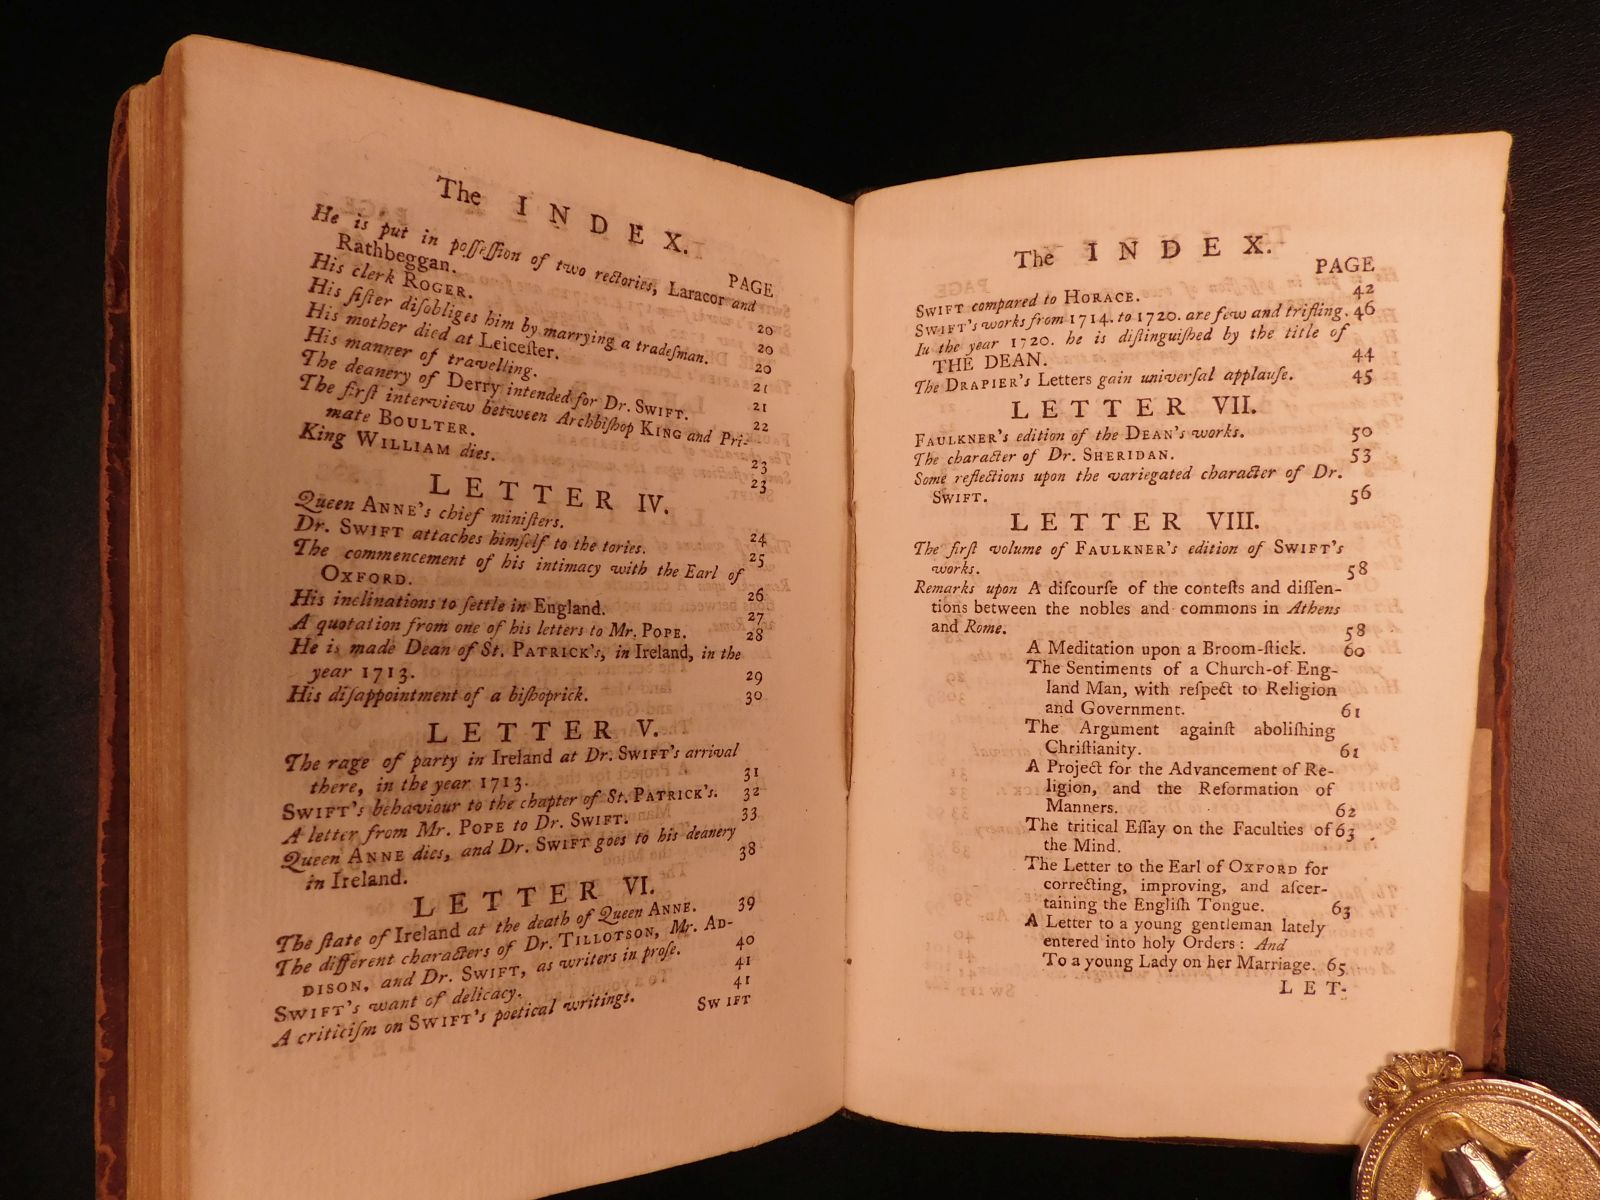 The INDEX.
PAGE
He is put in poſſeſſion of two rectories, Laracor and
Rathbeggan. 20
His clerk ROGER. 20
His ſiſter diſobliges him by marrying a tradeſman. 20
His mother died at Leiceſter. 21
His manner of travelling. 21
The deanery of Derry intended for Dr. SWIFT. 22
The firſt interview between Archbiſhop KING and Pri-
mate BOULTER. 23
King WILLIAM dies. 23
LETTER IV.
Queen ANNE's chief miniſters. 24
Dr. SWIFT attaches himſelf to the tories. 25
The commencement of his intimacy with the Earl of
OXFORD. 26
His inclinations to ſettle in England. 27
A quotation from one of his letters to Mr. POPE. 28
He is made Dean of St. PATRICK's, in Ireland, in the
year 1713. 29
His diſappointment of a biſhoprick. 30
LETTER V.
The rage of party in Ireland at Dr. SWIFT's arrival
there, in the year 1713. 31
SWIFT's behaviour to the chapter of St. PATRICK's. 32
A letter from Mr. POPE to Dr. SWIFT. 33
Queen ANNE dies, and Dr. SWIFT goes to his deanery
in Ireland. 38
LETTER VI.
The ſtate of Ireland at the death of Queen ANNE. 39
The different characters of Dr. TILLOTSON, Mr. AD-
DISON, and Dr. SWIFT, as writers in proſe. 40
SWIFT's want of delicacy. 41
A criticiſm on SWIFT's poetical writings. 41
SWIFT
The INDEX.
PAGE
SWIFT compared to HORACE. 42
SWIFT's works from 1714. to 1720. are few and trifling. 46
In the year 1720. he is diſtinguiſhed by the title of
THE DEAN. 44
The DRAPIER's Letters gain univerſal applauſe. 45
LETTER VII.
FAULKNER's edition of the DEAN's works. 50
The character of Dr. SHERIDAN. 53
Some reflections upon the variegated character of Dr.
SWIFT. 56
LETTER VIII.
The firſt volume of FAULKNER's edition of SWIFT's
works. 58
Remarks upon A diſcourſe of the conteſts and diſſen-
tions between the nobles and commons in Athens
and Rome. 58
A Meditation upon a Broom-ſtick. 60
The Sentiments of a Church-of Eng-
land Man, with reſpect to Religion
and Government. 61
The Argument againſt aboliſhing
Chriſtianity. 61
A Project for the Advancement of Re-
ligion, and the Reformation of
Manners. 62
The tritical Eſſay on the Faculties of 63
the Mind.
The Letter to the Earl of OXFORD for
correcting, improving, and aſcer-
taining the Engliſh Tongue. 63
A Letter to a young gentleman lately
entered into holy Orders: And
To a young Lady on her Marriage. 65
LET-